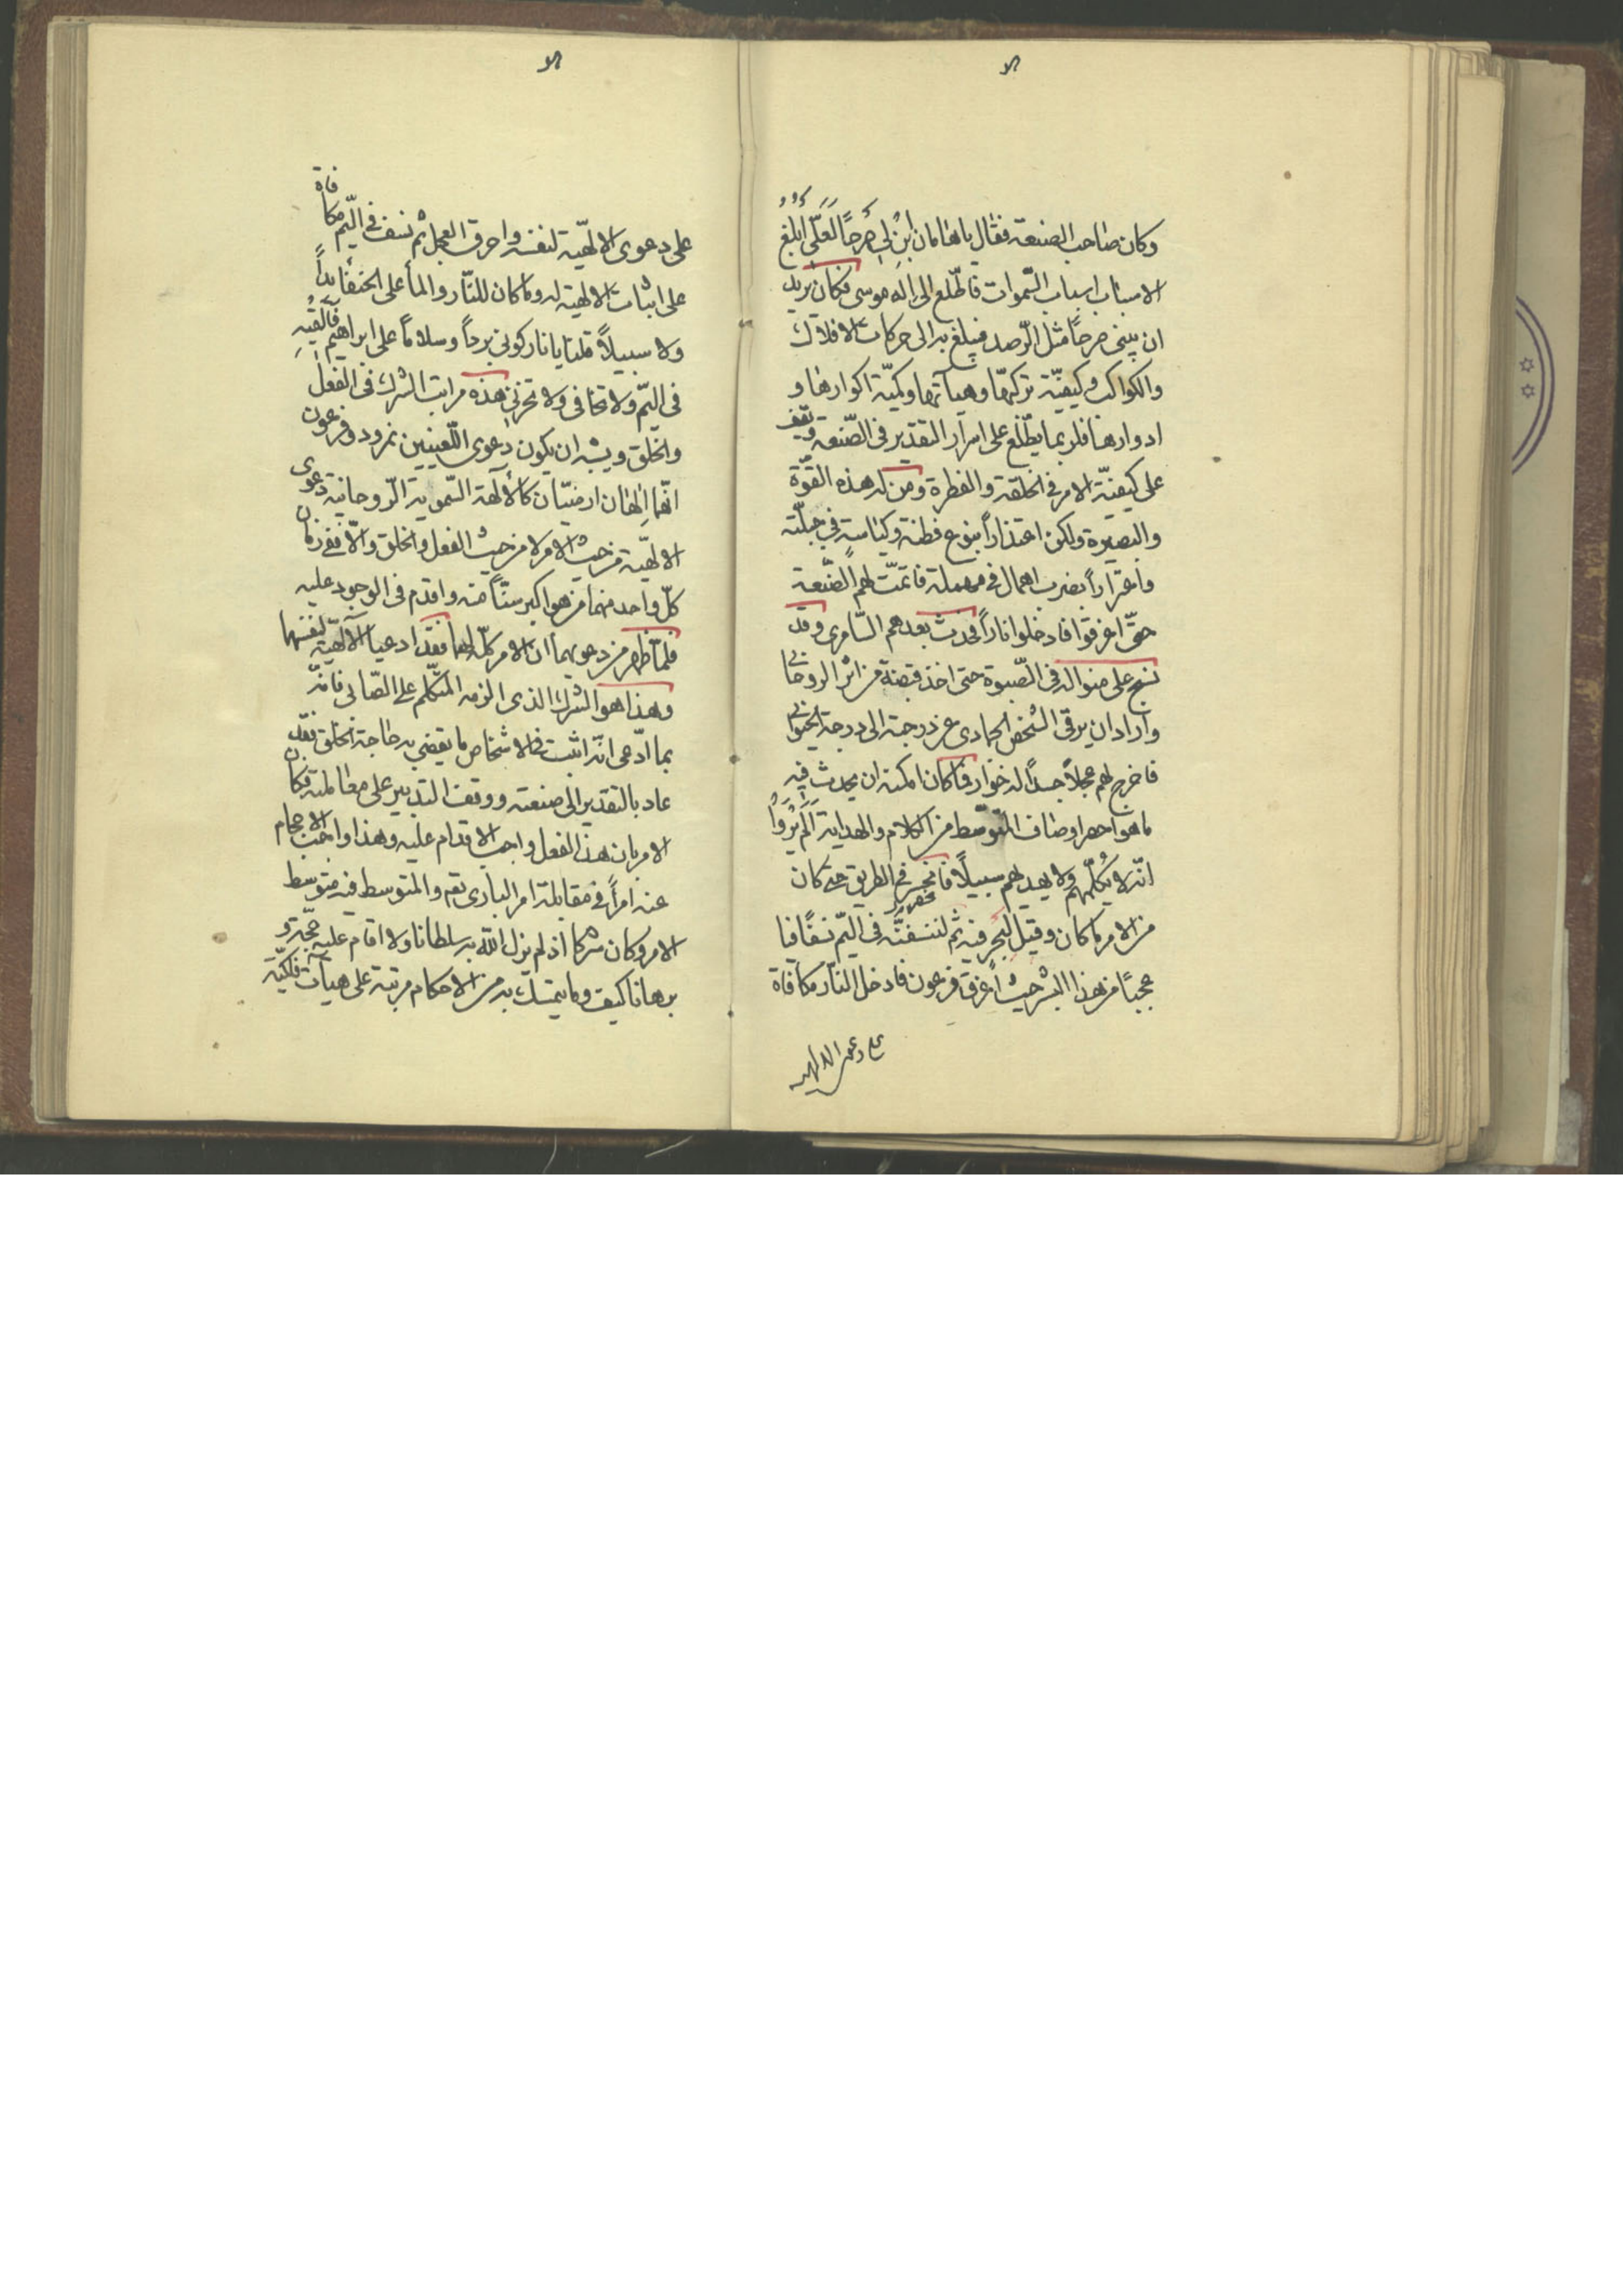 وكان صاحب الصنعة فقال ياهامان ابْنِ لِى صرحًا لَعَلّى ابْلُغُ
الاسباب اسباب السّموات فاطّلع الى اله موسى فكان يريد
ان يبنى صرحًا مثل الرّصد فيبلغ به الى حركات الافلاك
والكواكب وكيفيّة تركبها وهيآتها وكميّة اكوارها و
ادوارها فلربما يطّلع على اسرار التقدير فى الصّنعة ويقف
على كيفيّة الامر فى الخلقة والفطرة ومن له هذه القوّة
والبصيرة ولكن اعتذاراً بنوع فطنة وكياسة فى جبلّته
واغتراراً بضرب اهمال فى مهملة فما تمّت لهم الصّنعة
حتّى اغرقوا فادخلوا ناراً فحدث بعدهم السّامرى وقد
نسج على منواله فى الصّبوة حتى اخذ قبضة من اثر الروحانى
واراد ان يرقى الشخص الجمادى عن درجته الى درجة الحيوانى
فاخرج لهم عجلاً جسداً له خوار فما كان امكنه ان يحدث فيه
ما هو اخص اوصاف المتوسّط من الكلام والهداية اَلَمْ يَرَوْا
انّه لا يُكلّمهم ولا يهديهم سبيلاً فانحسر فى الطريق حتى كان
من الامر ما كان وقيل لنحرقنه ثم لننسفنّه فى اليّم نسفًا فيا
عجبًا من هذا السّر حيث اُغرق فرعون فادخل النّار مكافاة
على دعوى الالهية
على دعوى الالهيّة لنفسه واحرق العجل ثم نسف فى اليّم مكافاة
على اثبات الالهية له وما كان للنّار والماء على الحنفاء يداً
ولا سبيلاً قلنا يا نار كونى برداً وسلاماً على ابراهيم فَاَلْقيهِ
فى اليّم ولا تخافى ولا تحزنى هذه مراتب الشرك فى الفعل
والخلق ويشبه ان يكون دعوى اللّعينين نمرود وفرعون
انّهما الهان ارضيّان كالآلهة السّموية الرّوحانية دعوى
الالهيّة من حيث الامر لا من حيث الفعل والخلق والّا ففى زمان
كلّ واحد منهما من هو اكبر سنّاً منه واقدم فى الوجود عليه
فلمّا ظهر من دعويهما ان الامر كلّه لهما فقد ادعيا الآلهيّة لنفسهما
وهذا هو الشرك الذى الزمه المتكلّم على الصّابى فانّه
بما ادّعى انّه اثبت فى الاشخاص ما يقضى به حاجة الخلق فقد
عاد بالتقدير الى صنعته ووقف التدبير على معاملته فكان
الامر بان هذا الفعل واجب الاقدام عليه وهذا واجب الاحجام
عنه امراً فى مقابلة امر البارى تعم والمتوسط فيه متوسط
الامر وكان شركا اذ لم ينزل الله به سلطانا ولا اقام عليه حجّة و
برهانا كيف وما يتمسّك به من الاحكام مرتبة على هيآت فلكيّة